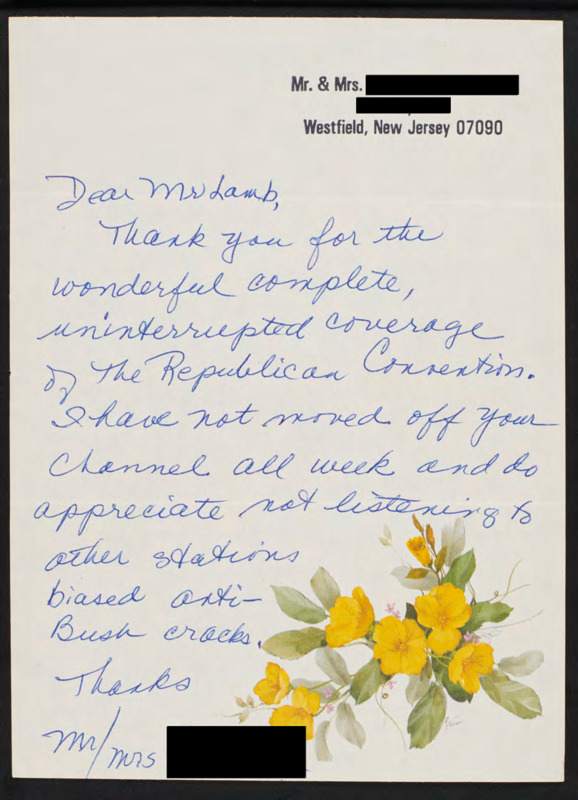 Mr. & Mrs.
Westfield, New Jersey 07090
Dear Mr Lamb,
Thank you for the
wonderful complete,
uninterrupted coverage
of the Republican Convention.
I have not moved off your
channel all week and do
appreciate not listening to
other stations
biased anti-
Bush cracks.
Thanks
Mr/
Mrs